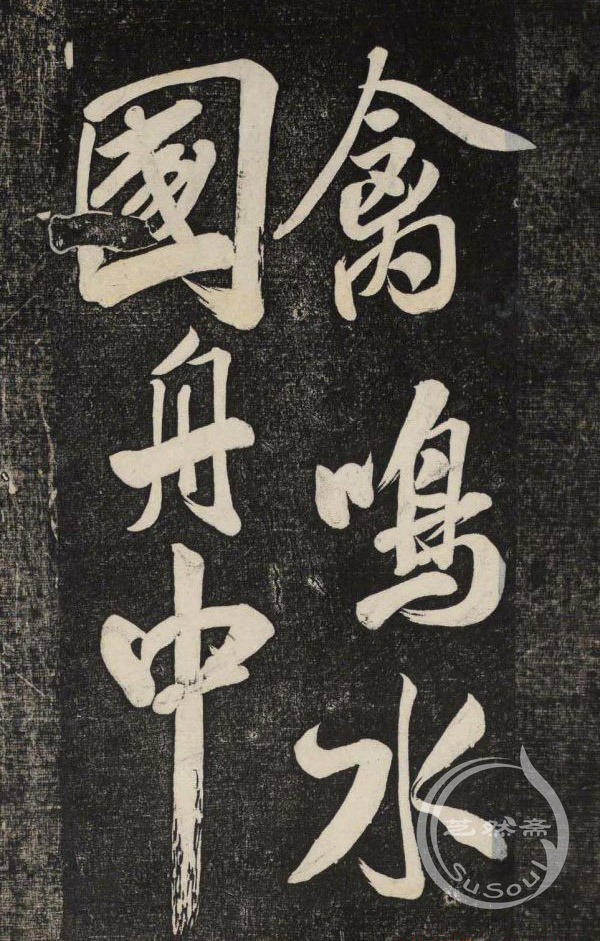 禽鳴水
國舟中
芝然斋
SuSoul